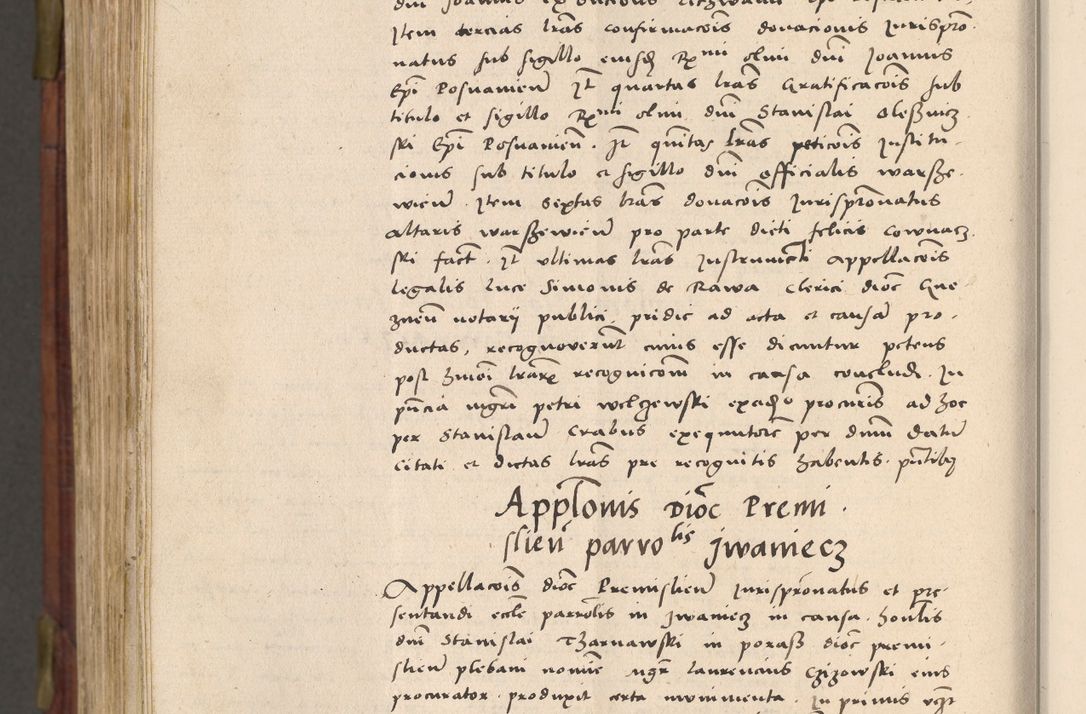 Jtem tercias lras confirmacois donacionis Jurispro
natus sub sigillo eiusd Rmi olim dni Joannis
Epi Posnanien Jt quartas lras Gratificacois sub
titulo et sigillo Rmi olim dni Stanislai Olesznicz
ski Epi Posnanien . Jt quitas lras peticois Jnstitu
cionis sub titulo et sigillo dni officialis warsze
wien . Jtem Sextas lras donacois Jurispronatus
altaris warszewien pro parte dicti felicis Cownacz
ski fact . Jt ultimas lras Jnstrumeti Appellacois
legalis luce Simonis de Rawa Clerici dioc Gne
znen notarij publici pridie ad acta et causa pro
ductas , recognoverut cuius esse dicuntur petens
post hmoi lrar recognicom in causa concludi . Jn
pncia mgri petri welzewski procuris ad hoc
per Stanislau Crabus exequutore per dnm datu
Citati et dictas lras pre recognitis habentis . pntibq
Appltonis Dioc Premi .
slien parrolis Jwaniecz
Appellacois dioc Premislien Jurispronatus et pre
sentandi eccle parrolis in Jwaniecz in causa . honlis
dni Stanislai Tharnawski in porasz dioc premi
slien plebani nomie mgr laurencius Czizowski eius
procurator . produxit certa munimenta . Jn primis